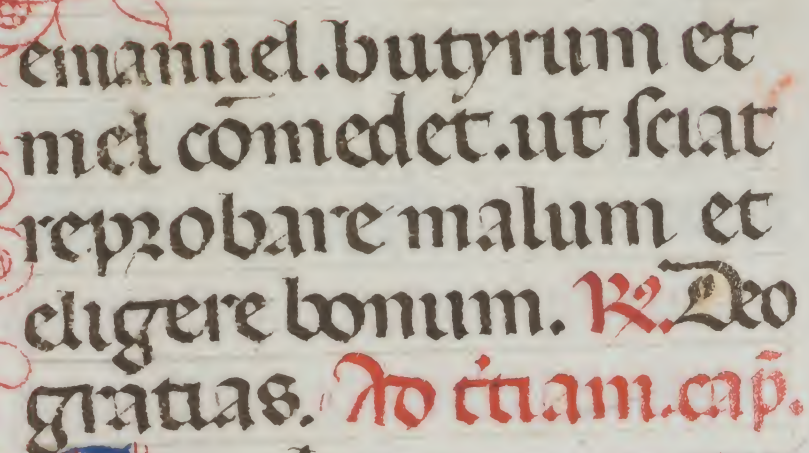 emanuel. butyrum et
mel cōmedet. ut sciat
reprobare malum et
eligere bonum. ℟. Deo
gratias. Ad t̾ciam. cap̄.